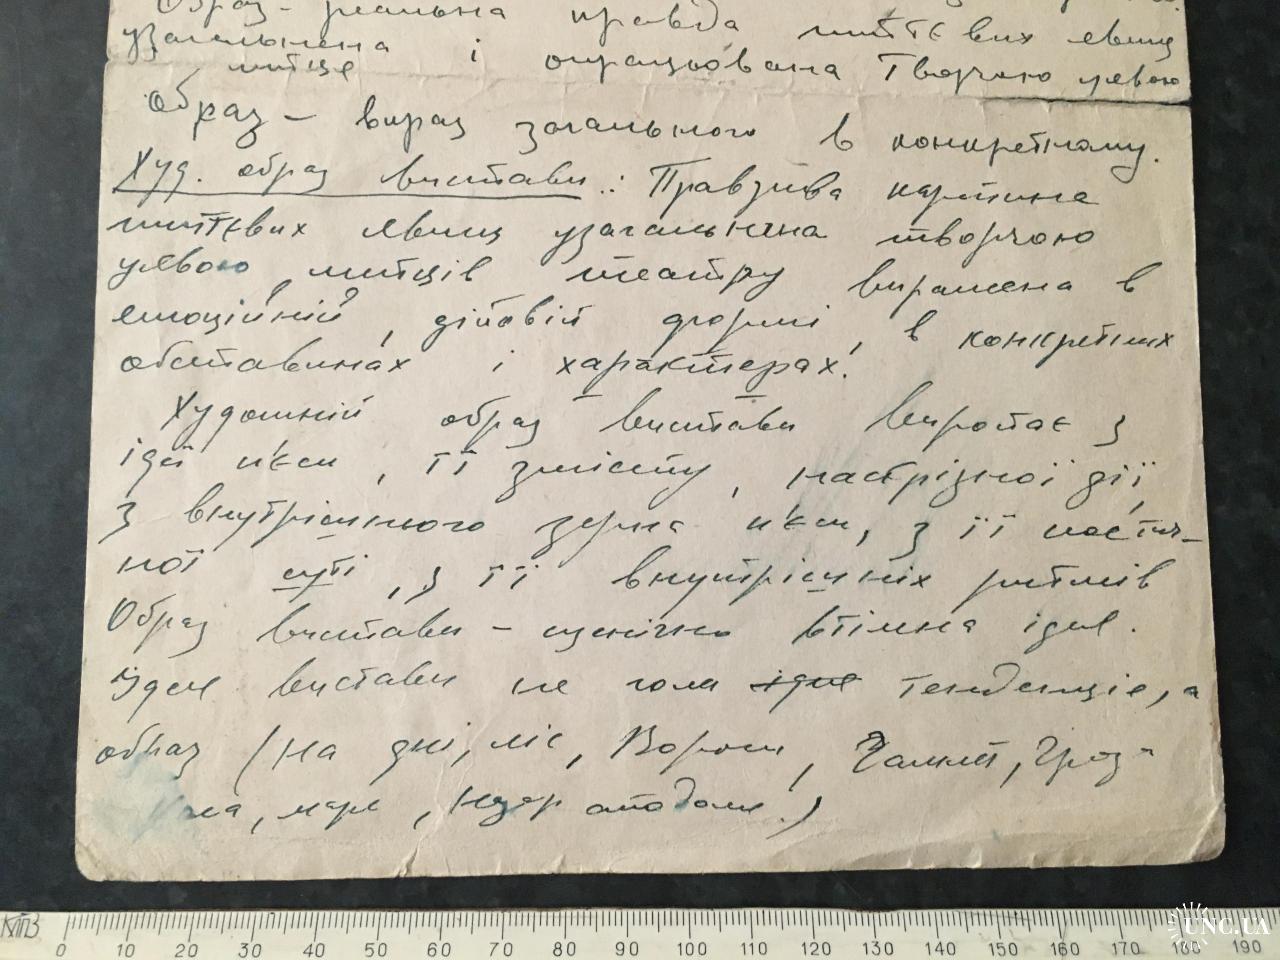 Образ - реальна правда життєвих явищ
узагальнена і опрацьована творчою уявою
митце
Образ - вираз загального в конкретному.
Худ. образ вистави.: Правдива картина
життєвих явищ узагальнена творчою
уявою митців театру виражена в
емоційній, дійовій формі, в конкретних
обставинах і характерах.
Художній образ вистави виростає з
ідеї п'єси, її змісту, наскрізної дії,
з внутрішнього зерна п'єси, з її поетич-
ної суті, з її внутрішніх ритмів
Образ вистави - сценічно втілена ідея.
Ідея вистави не гола ідея тенденція, а
образ (На дні, ліс, Вороги, Гамлет, Гроза
маре, Назар стодоля.)
КПЗ
0 10 20 30 40 50 60 70 80 90 100 110 120 130 140 150 160 170 180 190
UNC.UA